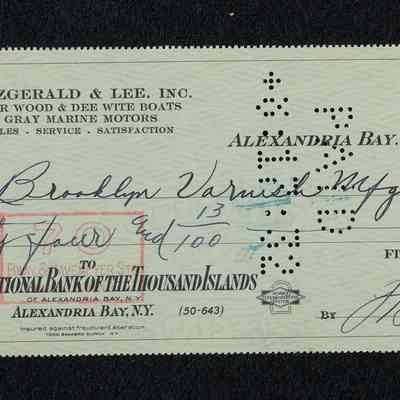 ZGERALD & LEE, INC.
R WOOD & DEE WITE BOATS
GRAY MARINE MOTORS
LES - SERVICE - SATISFACTION
ALEXANDRIA BAY,
Brooklyn Varnish Mfg
y four and 13/100
70
TO
TIONAL BANK OF THE THOUSAND ISLANDS
OF ALEXANDRIA BAY, N.Y.
ALEXANDRIA BAY, N.Y. (50-643)
Insured against fraudulent alteration
FI
BY
PAID